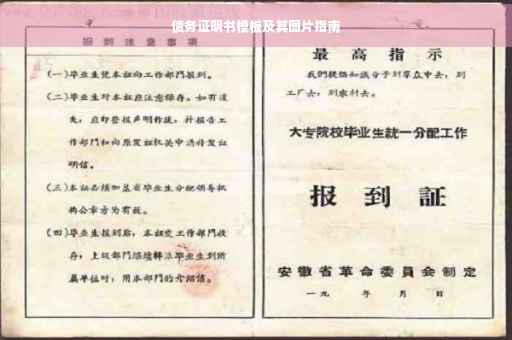 债务证明书模板及其图片指南
报到注意事项
(一)毕业生凭本证向工作部门报到。
(二)毕业生对本证应注意保存。如有遗
失,应即登报声明作废,并报告工
作部门和向原发证机关申请补发证
明信。
(三)本证必须加盖省毕业生分配领导机
构公章方为有效。
(四)毕业生报到后,本证交工作部门收
存;上级部门继续转派毕业生到所
属单位时,用本部门的介绍信。
最高指示
我们提倡知识分子到群众中去,到
工厂去,到农村去。
大专院校毕业生統一分配工作
报到証
安徽省革命委員会制定
一九 年 月 日